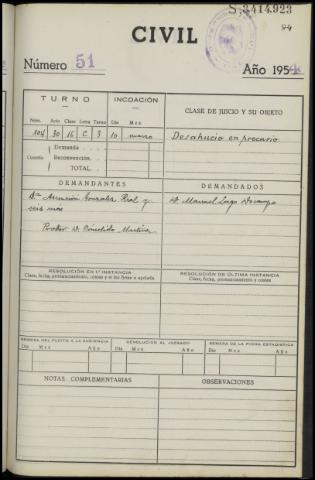 S,3414,923
CIVIL
Número 51
Año 1954
TURNO
INCOACIÓN
CLASE DE JUICIO Y SU OBJETO
Núm. Acto Clase Letra Turno Día Mes
104 30 16 C 3 10 enero
Desahucio en precario
Demanda
Cuantía Reconvención
TOTAL
DEMANDANTES
DEMANDADOS
Dª Asunción González Real y
seis más
D. Manuel Lago Docampo
Prodor D. Cándido
RESOLUCIÓN EN 1ª INSTANCIA
Clase, fecha, pronunciamiento, costas y si fué firme o apelada
RESOLUCIÓN DE ÚLTIMA INSTANCIA
Clase, fecha, pronunciamiento y costas
REMESA DEL PLEITO A LA AUDIENCIA
DEVOLUCIÓN AL JUZGADO
REMESA DE LA PIEZA ESTADÍSTICA
Día Mes Año
Día Mes Año
Día Mes Año
NOTAS COMPLEMENTARIAS
OBSERVACIONES